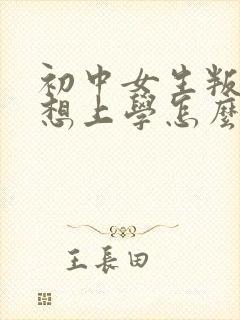 初中女生叛
想上學怎麼
王長田